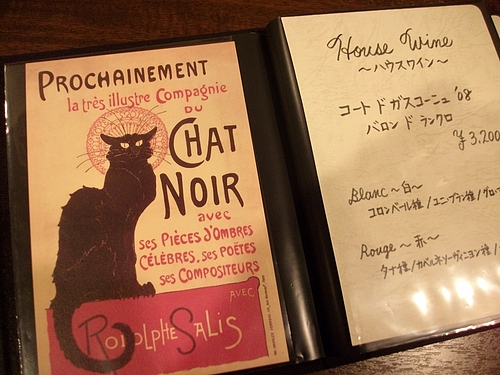 PROCHAINEMENT
la très illustre Compagnie
DU
CHAT
NOIR
avec
ses PIÈCES d'OMBRES
CÉLÈBRES, ses POÈTES
ses COMPOSITEURS
AVEC
RODOLPHE SALIS
House Wine
～ハウスワイン～
コート ド ガスコーニュ '08
バロン ド ランクロ
¥3,200
Blanc ～白～
コロンバール種/ユニ・ブラン種/グロ
Rouge ～赤～
タナ種/カベルネ・ソーヴィニヨン種/